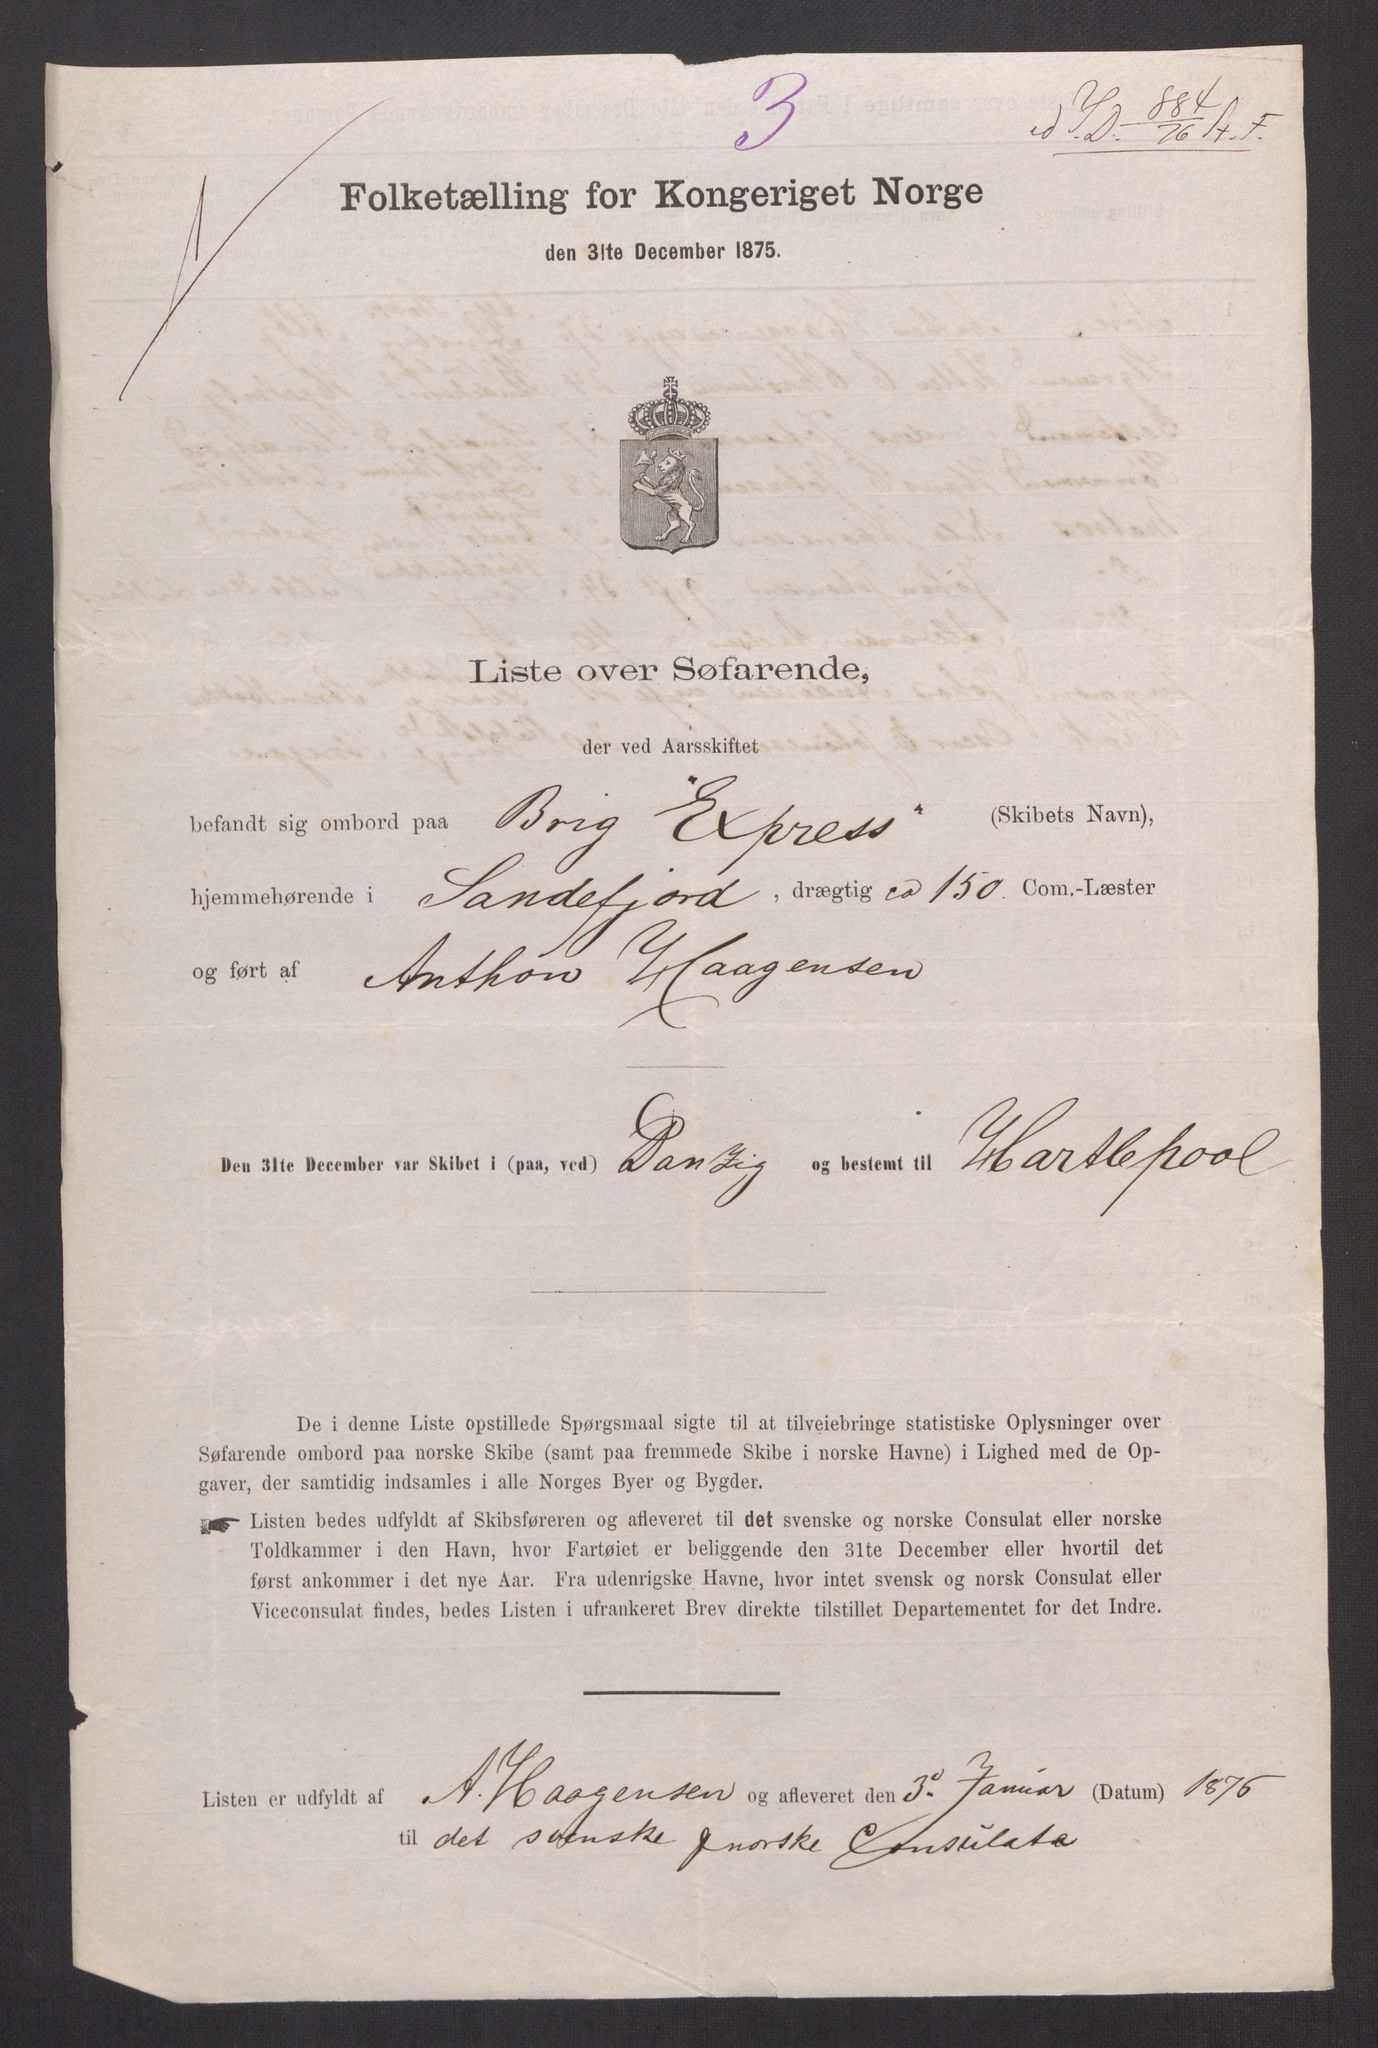 3
884
76
Folketælling for Kongeriget Norge
den 31te December 1875.
Liste over Søfarende,
der ved Aarsskiftet
befandt sig ombord paa Brig "Express" (Skibets Navn),
hjemmehørende i Sandefjord, drægtig ca 150 Com.-Læster
og ført af Anthon Haagensen
Den 31te December var Skibet i (paa, ved) Danzig og bestemt til Hartlepool
De i denne Liste opstillede Spørgsmaal sigte til at tilveiebringe statistiske Oplysninger over
Søfarende ombord paa norske Skibe (samt paa fremmede Skibe i norske Havne) i Lighed med de Op-
gaver, der samtidig indsamles i alle Norges Byer og Bygder.
Listen bedes udfyldt af Skibsføreren og afleveret til det svenske og norske Consulat eller norske
Toldkammer i den Havn, hvor Fartøiet er beliggende den 31te December eller hvortil det
først ankommer i det nye Aar. Fra udenrigske Havne, hvor intet svensk og norsk Consulat eller
Viceconsulat findes, bedes Listen i ufrankeret Brev direkte tilstillet Departementet for det Indre.
Listen er udfyldt af A. Haagensen og afleveret den 3. Januar (Datum) 1876
til det svenske norske Consulate